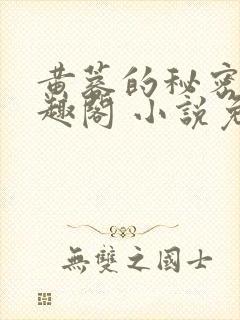 黄蓉的秘密
趣閣 小說免
無雙之國士